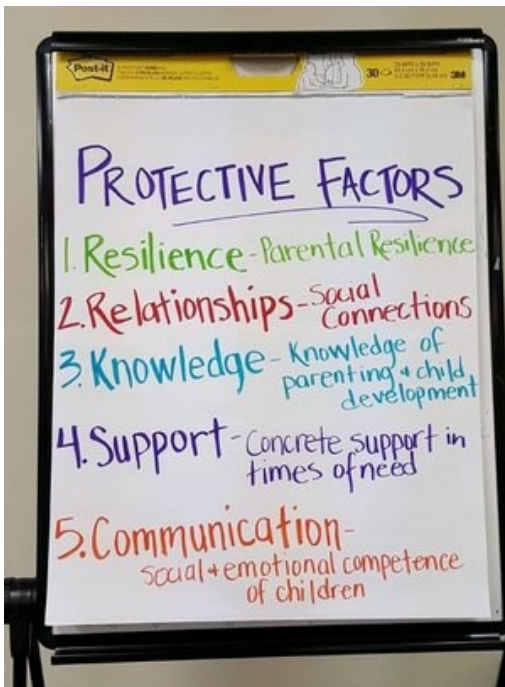 Post-it
30
3M
PROTECTIVE FACTORS
1. Resilience - Parental Resilience
2. Relationships - Social
Connections
3. Knowledge - Knowledge of
parenting + child
development
4. Support - Concrete support in
times of need
5. Communication -
social + emotional competence
of children